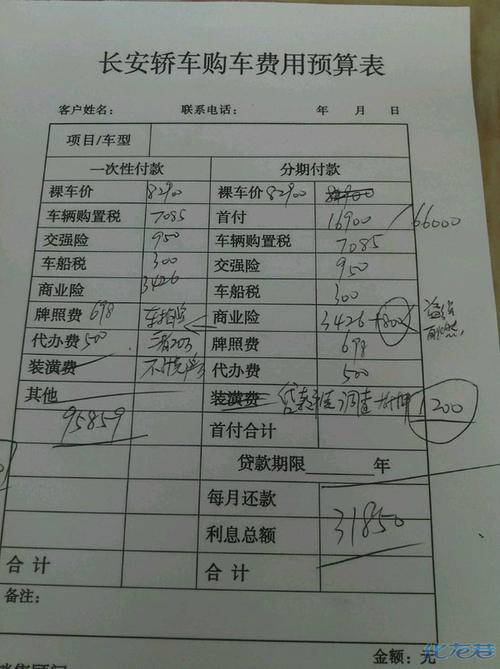 长安轿车购车费用预算表
客户姓名： 联系电话： 年 月 日
项目/车型
一次性付款 分期付款
裸车价 82900 裸车价 82900 84900
车辆购置税 7085 首付 16900 / 66000
交强险 950 车辆购置税 7085
车船税 300 交强险 950
商业险 3426 车船税 300
牌照费 698 车损 商业险 3426 +800
代办费 500 三者20万 牌照费 698
装潢费 不计免 代办费 500
其他 装潢费 贷款 调查 1200
95859 首付合计
贷款期限 年
每月还款
利息总额 31850
合计 合计
备注：
销售顾问 金额： 元
化龙巷